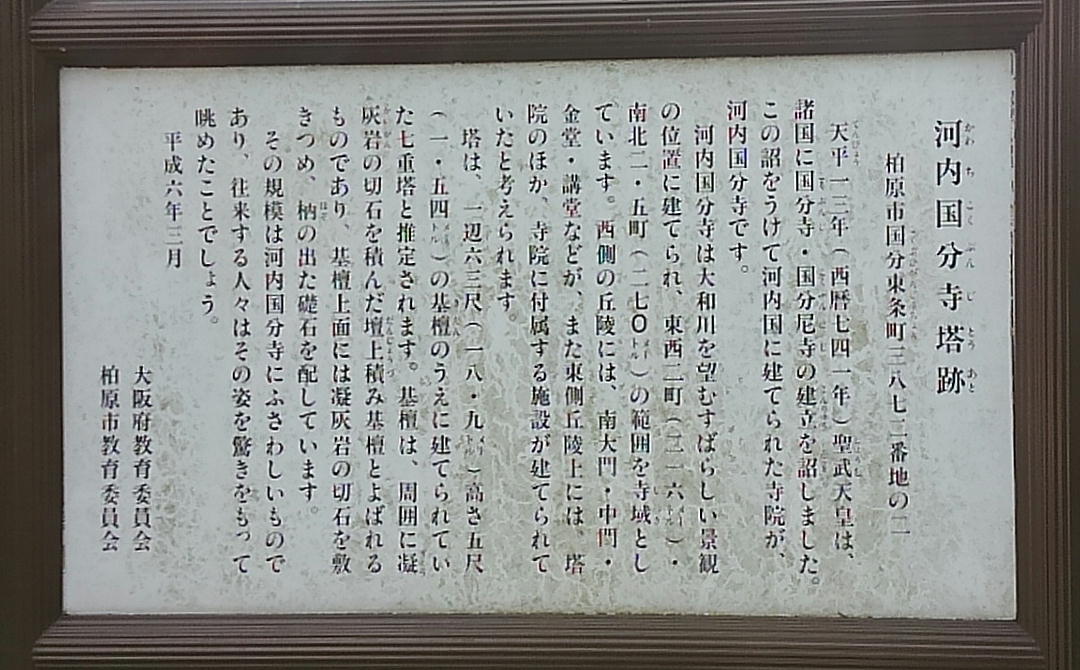 河内国分寺塔跡
柏原市国分東条町三八七二番地の二
天平一三年（西暦七四一年）聖武天皇は、
諸国に国分寺・国分尼寺の建立を詔しました。
この詔をうけて河内国に建てられた寺院が、
河内国分寺です。
河内国分寺は大和川を望むすばらしい景観
の位置に建てられ、東西二町（二一六メートル）・
南北二・五町（二七〇メートル）の範囲を寺域とし
ています。西側の丘陵には、南大門・中門・
金堂・講堂などが、また東側丘陵上には、塔
院のほか、寺院に付属する施設が建てられて
いたと考えられます。
塔は、一辺六三尺（一八・九メートル）高さ五尺
（一・五四メートル）の基檀のうえに建てられてい
た七重塔と推定されます。基檀は、周囲に凝
灰岩の切石を積んだ壇上積み基檀とよばれる
ものであり、基檀上面には凝灰岩の切石を敷
きつめ、枘の出た礎石を配しています。
その規模は河内国分寺にふさわしいもので
あり、往来する人々はその姿を驚きをもって
眺めたことでしょう。
平成六年三月
大阪府教育委員会
柏原市教育委員会